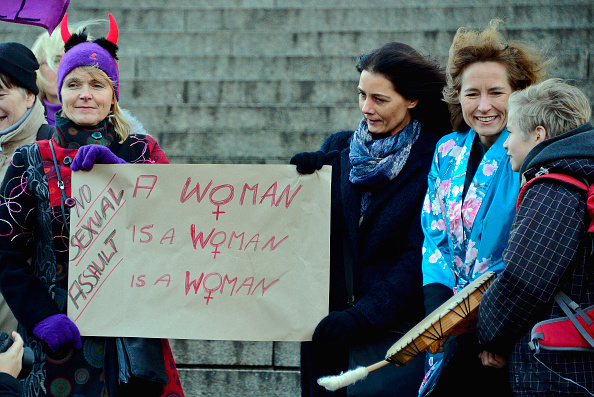 NO
SEXUAL
ASSAULT
A WOMAN
IS A WOMAN
IS A WOMAN